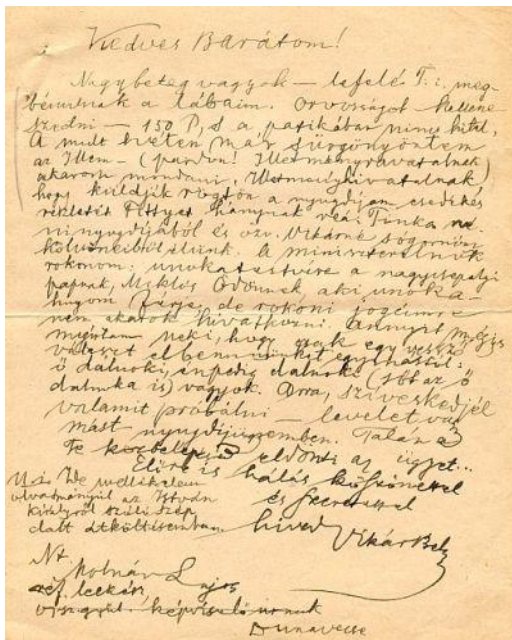 Kedves Barátom!
Nagybeteg vagyok — lefelé T. i. meg-
bénulnak a lábaim. Orvosságot kellene
szedni — 150 P, s a patikában nincs hitel.
A mult héten már sürgönyöztem
az Illem — (pardon! Illetményhivatalnak
akarom mondani, Illetményhivatalnak)
hogy küldjék rögtön a nyugdíjam esedékes
részletét. Fittyet hánynak reá. Tinka
nyugdíjából és özv. Vikárné sógornőm
kölcseneiből élünk. A miniszterelnök
rokonom: unokatestvére a nagycsepelyi
papnak, Miklós Ödönnek aki unoka-
hugom férje, de rokoni jogcímre
nem akarok hivatkozni. Annyit mégis
megírtam neki, hogy csak egy vessző
választ el bennünket egymástól:
ő dalnoki, én pedig dalnoka (sőt az ő
dalnoka is) vagyok. Arra, szíveskedjél
valamit próbálni — levelet
mást nyugdíjügyemben. Talán a
Te közbelépésed eldönti az ügyet...
Előre is hálás köszönettel
és szeretettel
híved Vikár Béla
U. i. Ide mellékelem
olvasmányul az István
királyról szóló szép
dalt átköltésemben.
Nt.
Molnár Lajos
ref. lelkész,
képviselő úrnak
Dunavecse